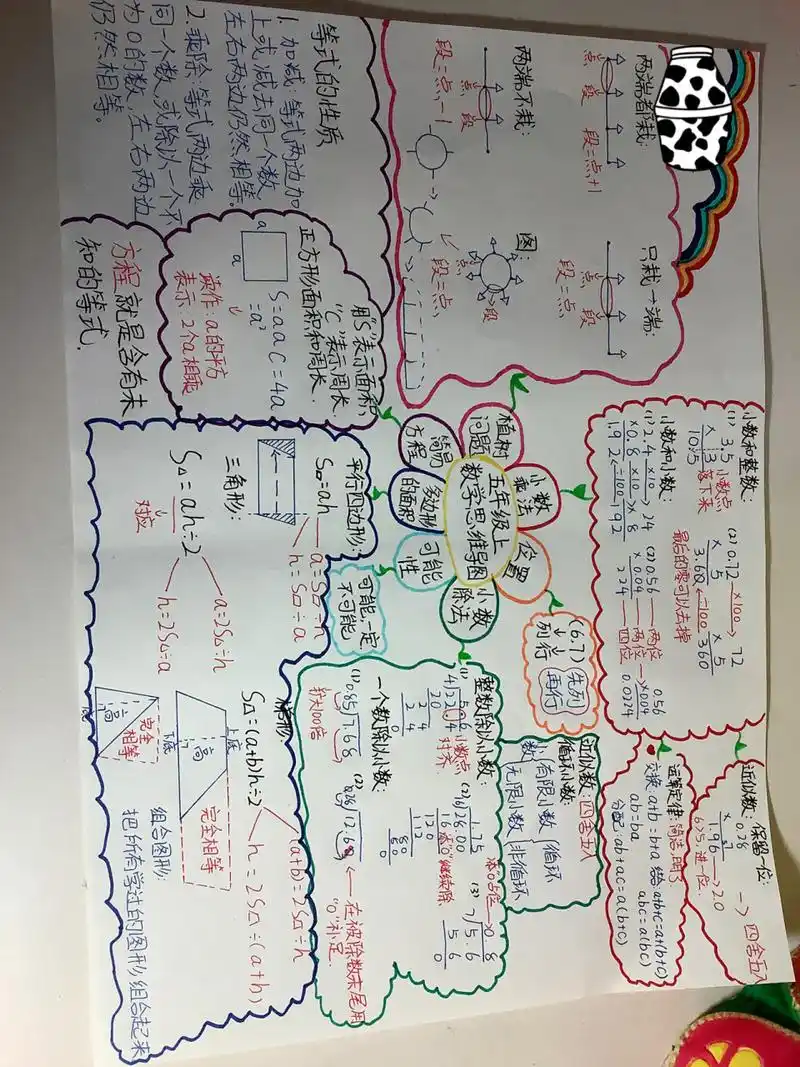 五年级上
数学思维导图
植树
问题
小数
乘法
位置
小数
除法
可能
性
多边形
的面积
简易
方程
两端都栽:
点 段
段=点+1
只栽一端:
点 段
段=点
两端不栽:
点 段
段=点-1
图:
段
段=点
小数和整数:
(1) 3.5 小数点
× 3 落下来
10.5
(2) 0.72 ×100→ 72
× 5 × 5
3.60 ←÷100 360
最后的零可以去掉
小数和小数:
(1) 2.4 ×10→ 24
× 0.8 ×10→ × 8
1.92 ←÷100 192
(2) 0.56 — 两位 0.56
× 0.04 — 两位 → ×0.04
224 — 四位 0.0224
近似数: 保留一位:
0.28 → 四舍五入
× 7
1.96 → 2.0
6>5 进一位
运算定律: 简洁, 明了
交换: a+b=b+a 结: a+b+c=a+(b+c)
ab=ba abc=a(bc)
分配: ab+ac=a(b+c)
(6.7) 先列
↓ ↓ 再行
列 行
近似数: 四舍五入
循环小数:
数 有限小数 循环
无限小数 非循环
整数除以小数:
小数点
对齐
继续除
一个数除以小数:
(1) 0.85 7.68
扩大100倍
(2) 0.28 12.60 ← 在被除数末尾用
"0"补足
可能, 一定,
不可能
等式的性质
1. 加减: 等式两边加
上或减去同一个数
左右两边仍然相等。
2. 乘除: 等式两边乘
同一个数, 或除以一个不
为0的数, 左右两边
仍然相等。
用"S"表示面积
"C"表示周长
正方形面积和周长
a
a
S=aa C=4a
=a²
读作: a的平方
表示: 2个a相乘
方程 就是含有未
知的等式.
平行四边形:
S▱=ah
a=S▱÷h
h=S▱÷a
三角形:
S△=ah÷2
对应
a=2S△÷h
h=2S△÷a
高
底
完全
相等
梯形
S△=(a+b)h÷2
(a+b)=2S△÷h
h=2S△÷(a+h)
上底
高
下底
完全相等
组合图形:
把所有学过的图形组合起来